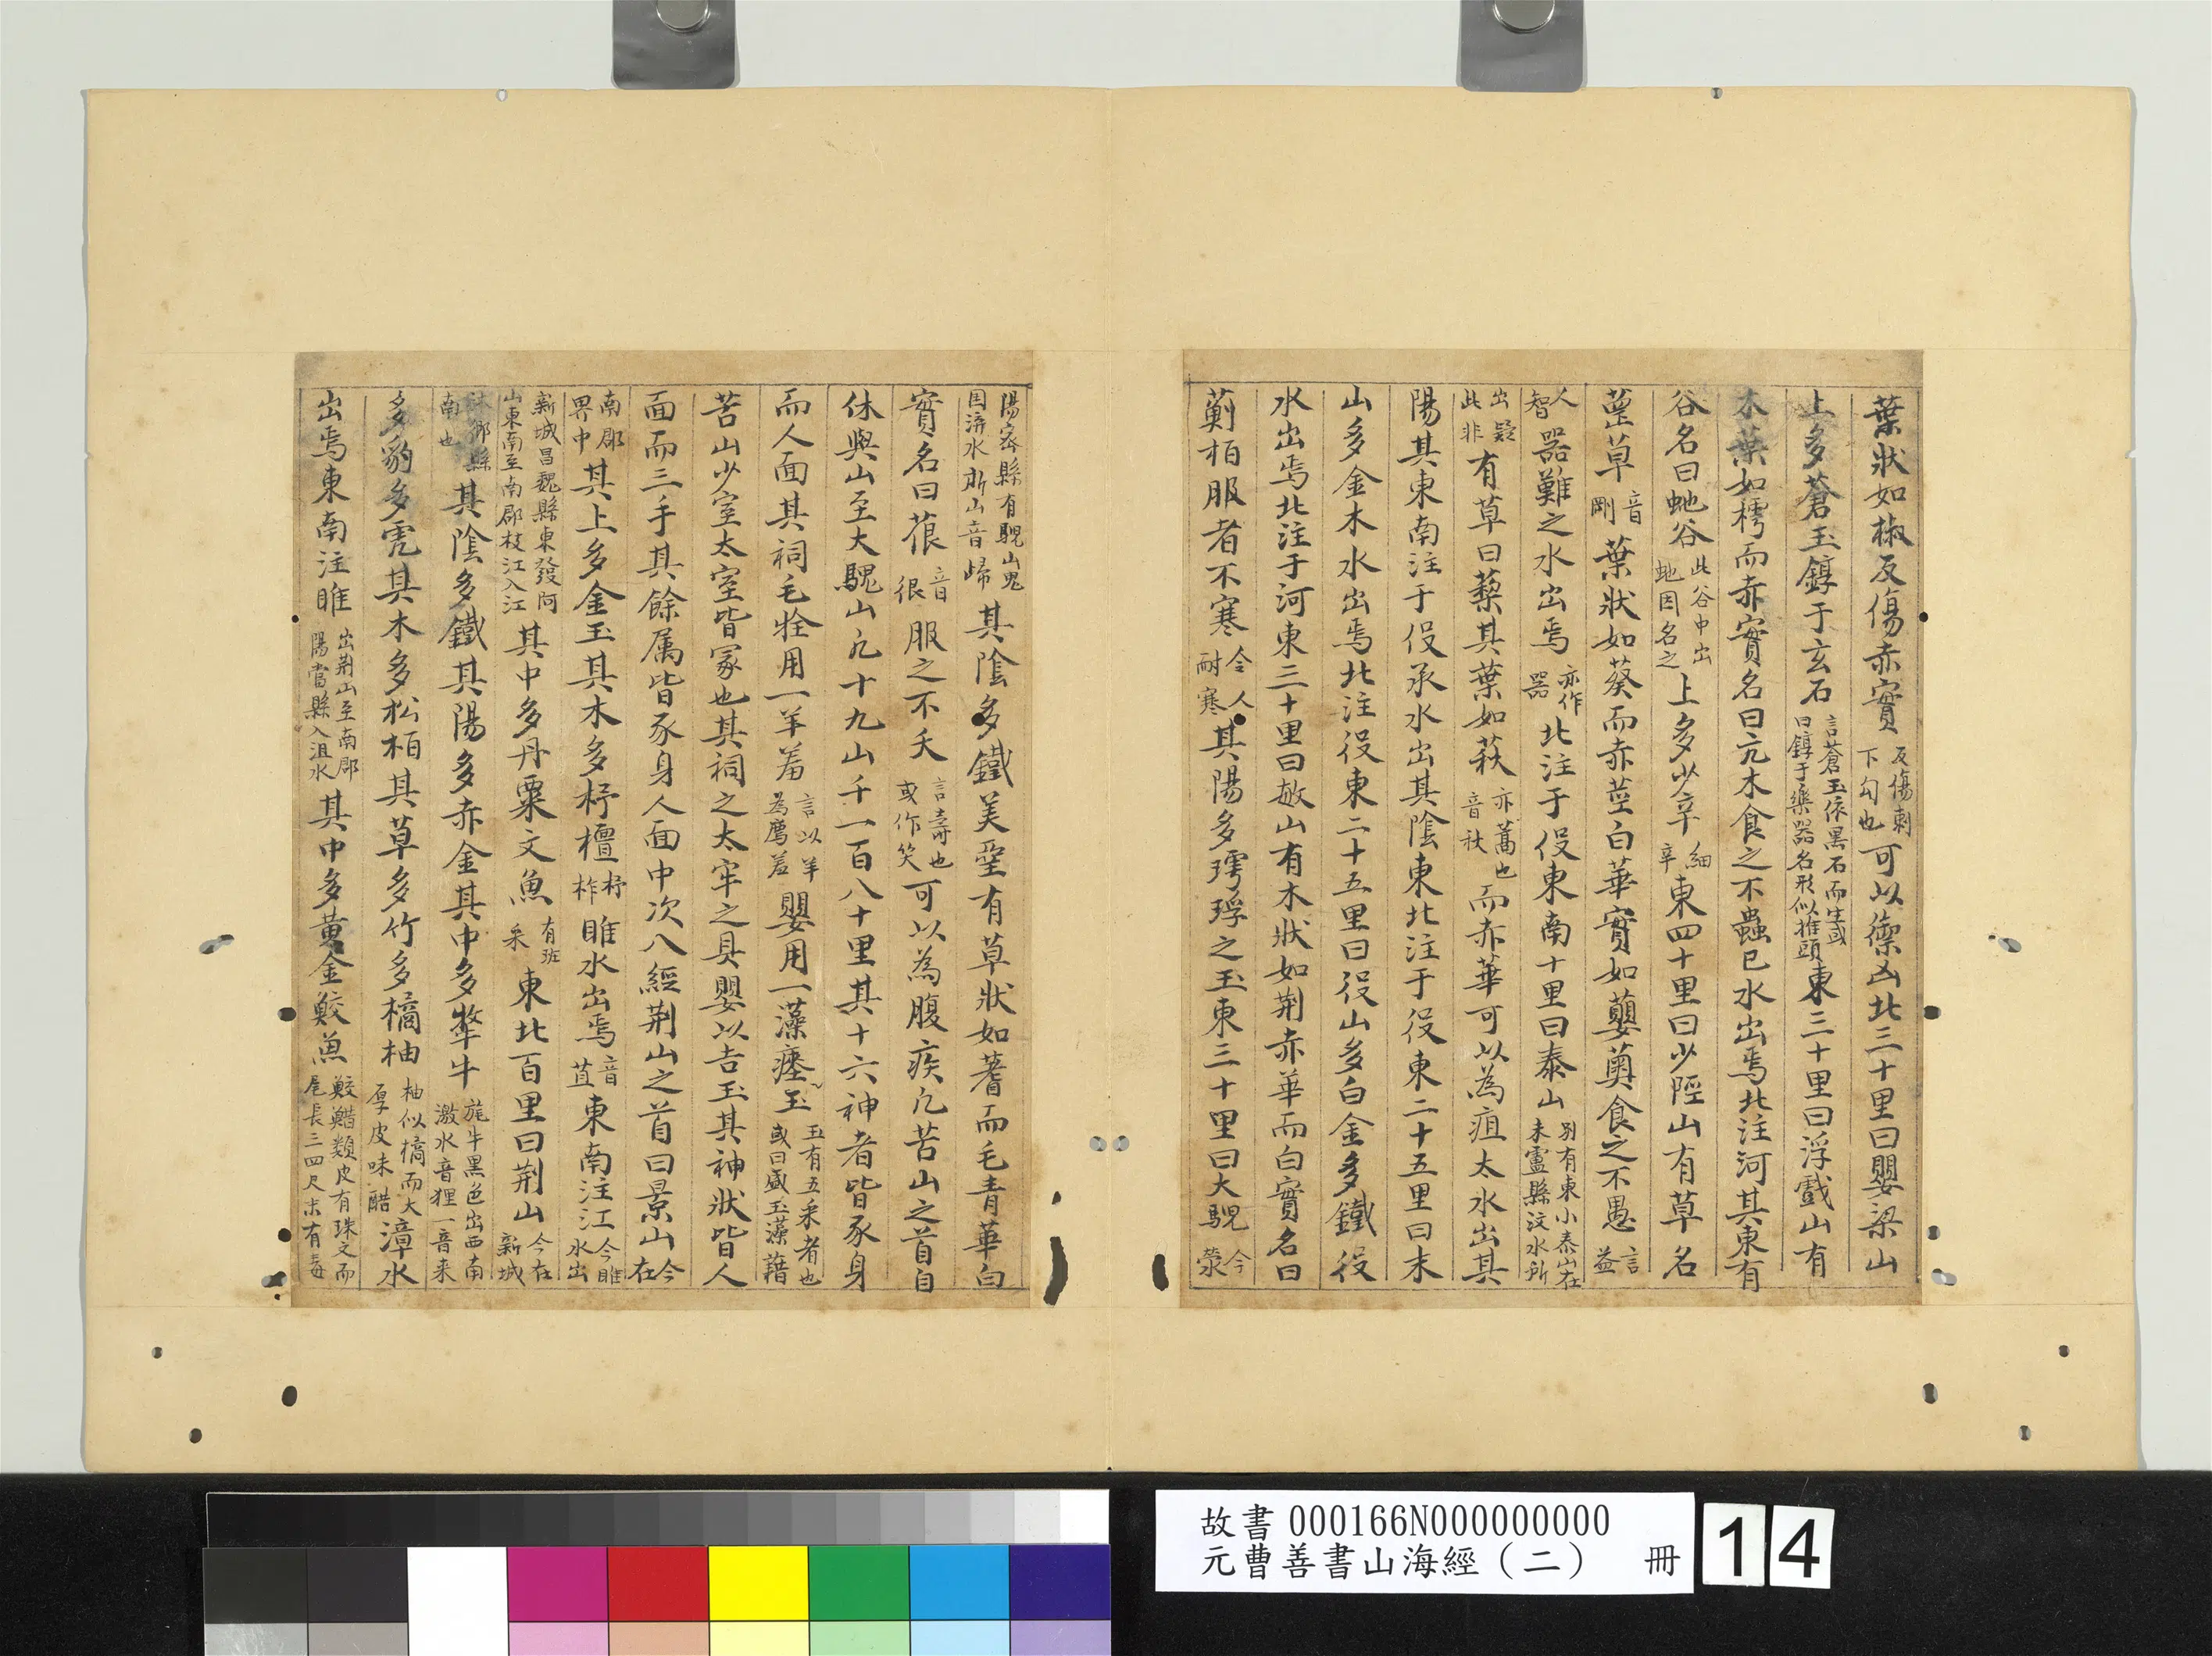 葉狀如椒反傷赤實反傷刺下勾也可以禦凶北三十里曰嬰梁山
上多蒼玉錞于玄石言蒼玉依黑石而生或曰錞于樂器名形似推頭東三十里曰浮戲山有
木葉如樗而赤實名曰亢木食之不蟲巳水出焉北注河其東有
谷名曰虵谷此谷中出虵因名之上多少辛細辛東四十里曰少陘山有草名
䓘草音剛葉狀如葵而赤莖白華實如蘡薁食之不愚言益
人智器難之水出焉亦作器北注于役東南十里曰泰山別有東小泰山在朱虛縣汶水所
出疑此非有草曰䔧其葉如萩亦蒿也音秋而赤華可以為疽太水出其
陽其東南注于役承水出其陰東北注于役東二十五里曰末
山多金木水出焉北注役東二十五里曰役山多白金多鐵役
水出焉北注于河東三十里曰敏山有木狀如荆赤華而白實名曰
葪栢服者不寒令人耐寒其陽多㻬琈之玉東三十里曰大騩今滎
陽密縣有騩山鬼固溱水所山音歸其陰多鐵美堊有草狀如蓍而毛青華白
實名曰䓳音很服之不夭言壽也或作笑可以為腹疾凢苦山之首自
休與山至大騩山凢十九山千一百八十里其十六神者皆豕身
而人面其祠毛牷用一羊羞言以羊為薦羞嬰用一藻瘞玉玉有五采者也或曰盛玉藻藉
苦山少室太室皆冢也其祠之太牢之具嬰以吉玉其神狀皆人
面而三手其餘属皆豕身人面中次八經荆山之首曰景山今在
南郡界中其上多金玉其木多杼檀杼柞雎水出焉音苴東南注江今雎水出
新城昌魏縣東發阿山東南至南郡枝江入江其中多丹粟文魚有班采東北百里曰荆山今在新城
沐鄉縣南也其陰多鐵其陽多赤金其中多犛牛旄牛黑色出西南激水音狸一音来
多豹多虎其木多松栢其草多竹多橘柚柚似橘而大厚皮味醋漳水
出焉東南注雎出荆山至南郡陽當縣入沮水其中多黃金鮫魚鮫䱜類皮有珠文而尾長三四尺末有毒
故書 000166N000000000
元曹善書山海經(二) 冊 14